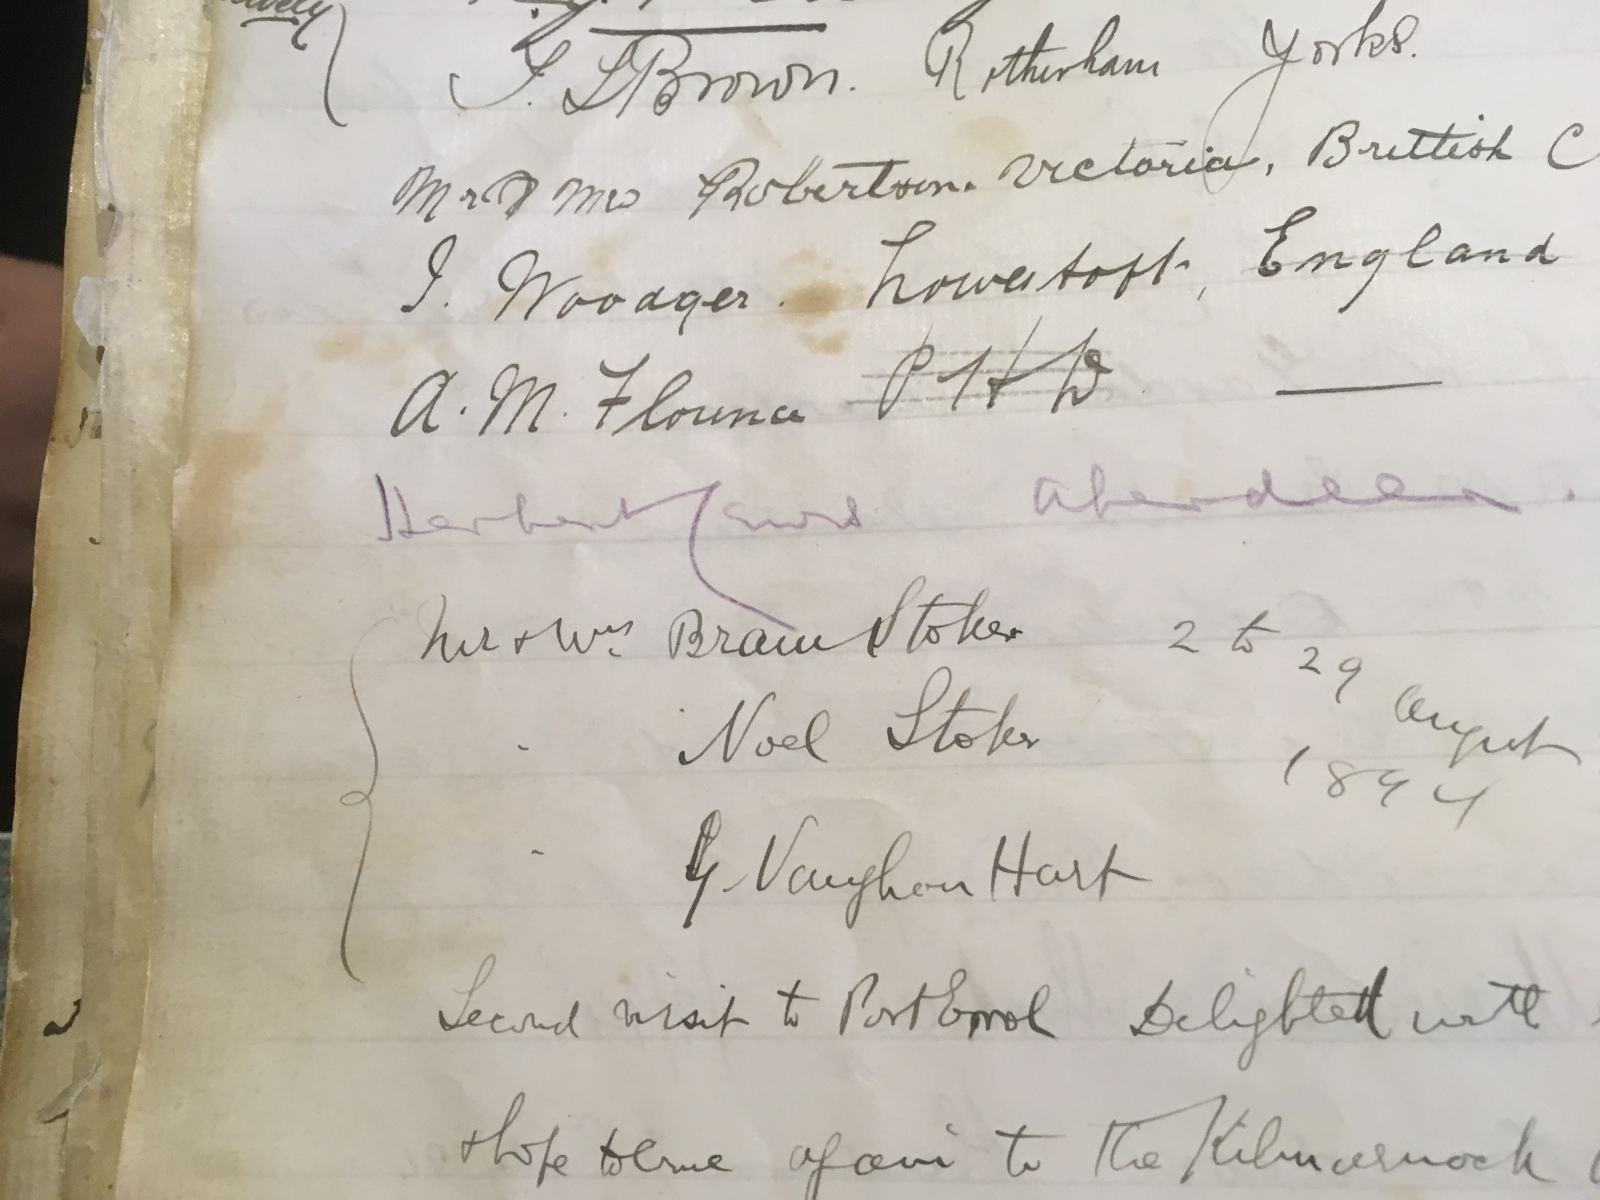 J. L Brown. Rotherham Yorks.
Mr & Mrs Robertson. Victoria, Brittish C
J. Woodger. Lowestoft, England
A. M. Flounce PHD —
Herbert Aberdeen.
Mr & Mrs Bram Stoker 2 to 29 August 1894
" Noel Stoker
" G. Vaughan Hart
Second visit to Port Errol Delighted with
& hope to come again to the Kilmarnock